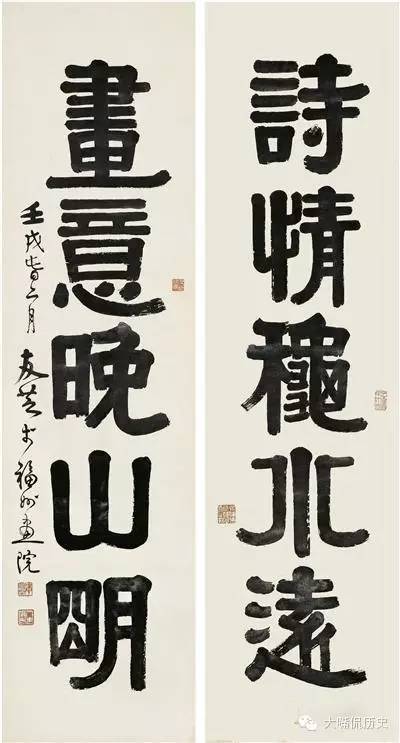 詩情穐水遠
畫意晚山明
壬戌春二月友芝于福州畫院
大嘴侃历史